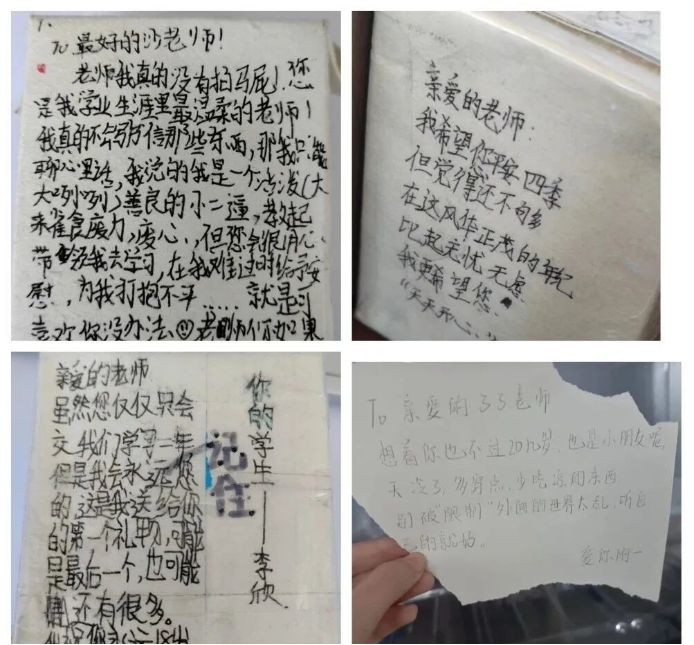 1.
To 最好的沙老师!
老师我真的没有拍马尾!您
是我学业生涯里最温柔的老师!
我真的不会写信那些东西,那我只能
聊心里话,我说的我是一个活泼(大
大咧咧)善良的小二逼,教起
来雀食废力,废心,但您会很用心
带给我去学习,在我难过时给予安
慰,为我打抱不平……就是
喜欢你没办法 老师你如果
亲爱的老师:
我希望您平安四季
但觉得还不够多
在这风华正茂的年纪
比起无忧无虑
我更希望您
"天天开心
亲爱的老师
虽然您仅仅只会
交我们学学一年
但是我会永远您
的,这是我送给你
的第一个礼物,可能
是最后一个,也可能
还有很多。
记住
你的学生——李欣
To 亲爱的
老师
想着你也不过20几岁,也是小朋友呢,
天冷了,多穿点,少吃凉的东西
别被"限制"外面的世界太乱,听自
己的就好。
爱你的一